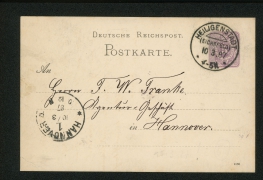 DEUTSCHE REICHSPOST.
POSTKARTE.
HEILIGENSTADT
10 3
4-5N
An
Herrn F. W. Franke,
Agentur-Geschäft
in Hannover.
HANNOVER
10/3
87